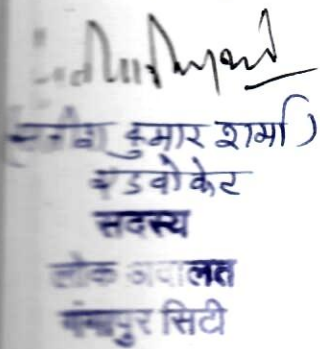 कुमार शर्मा)
एडवोकेट
सदस्य
लोक अदालत
गंगापुर सिटी